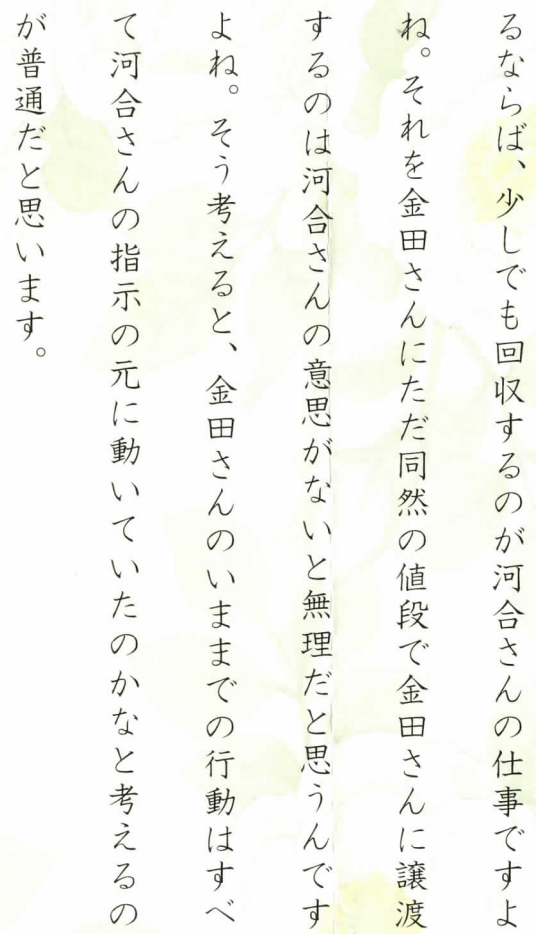 るならば、少しでも回収するのが河合さんの仕事ですよ
ね。それを金田さんにただ同然の値段で金田さんに譲渡
するのは河合さんの意思がないと無理だと思うんです
よね。そう考えると、金田さんのいままでの行動はすべ
て河合さんの指示の元に動いていたのかなと考えるの
が普通だと思います。